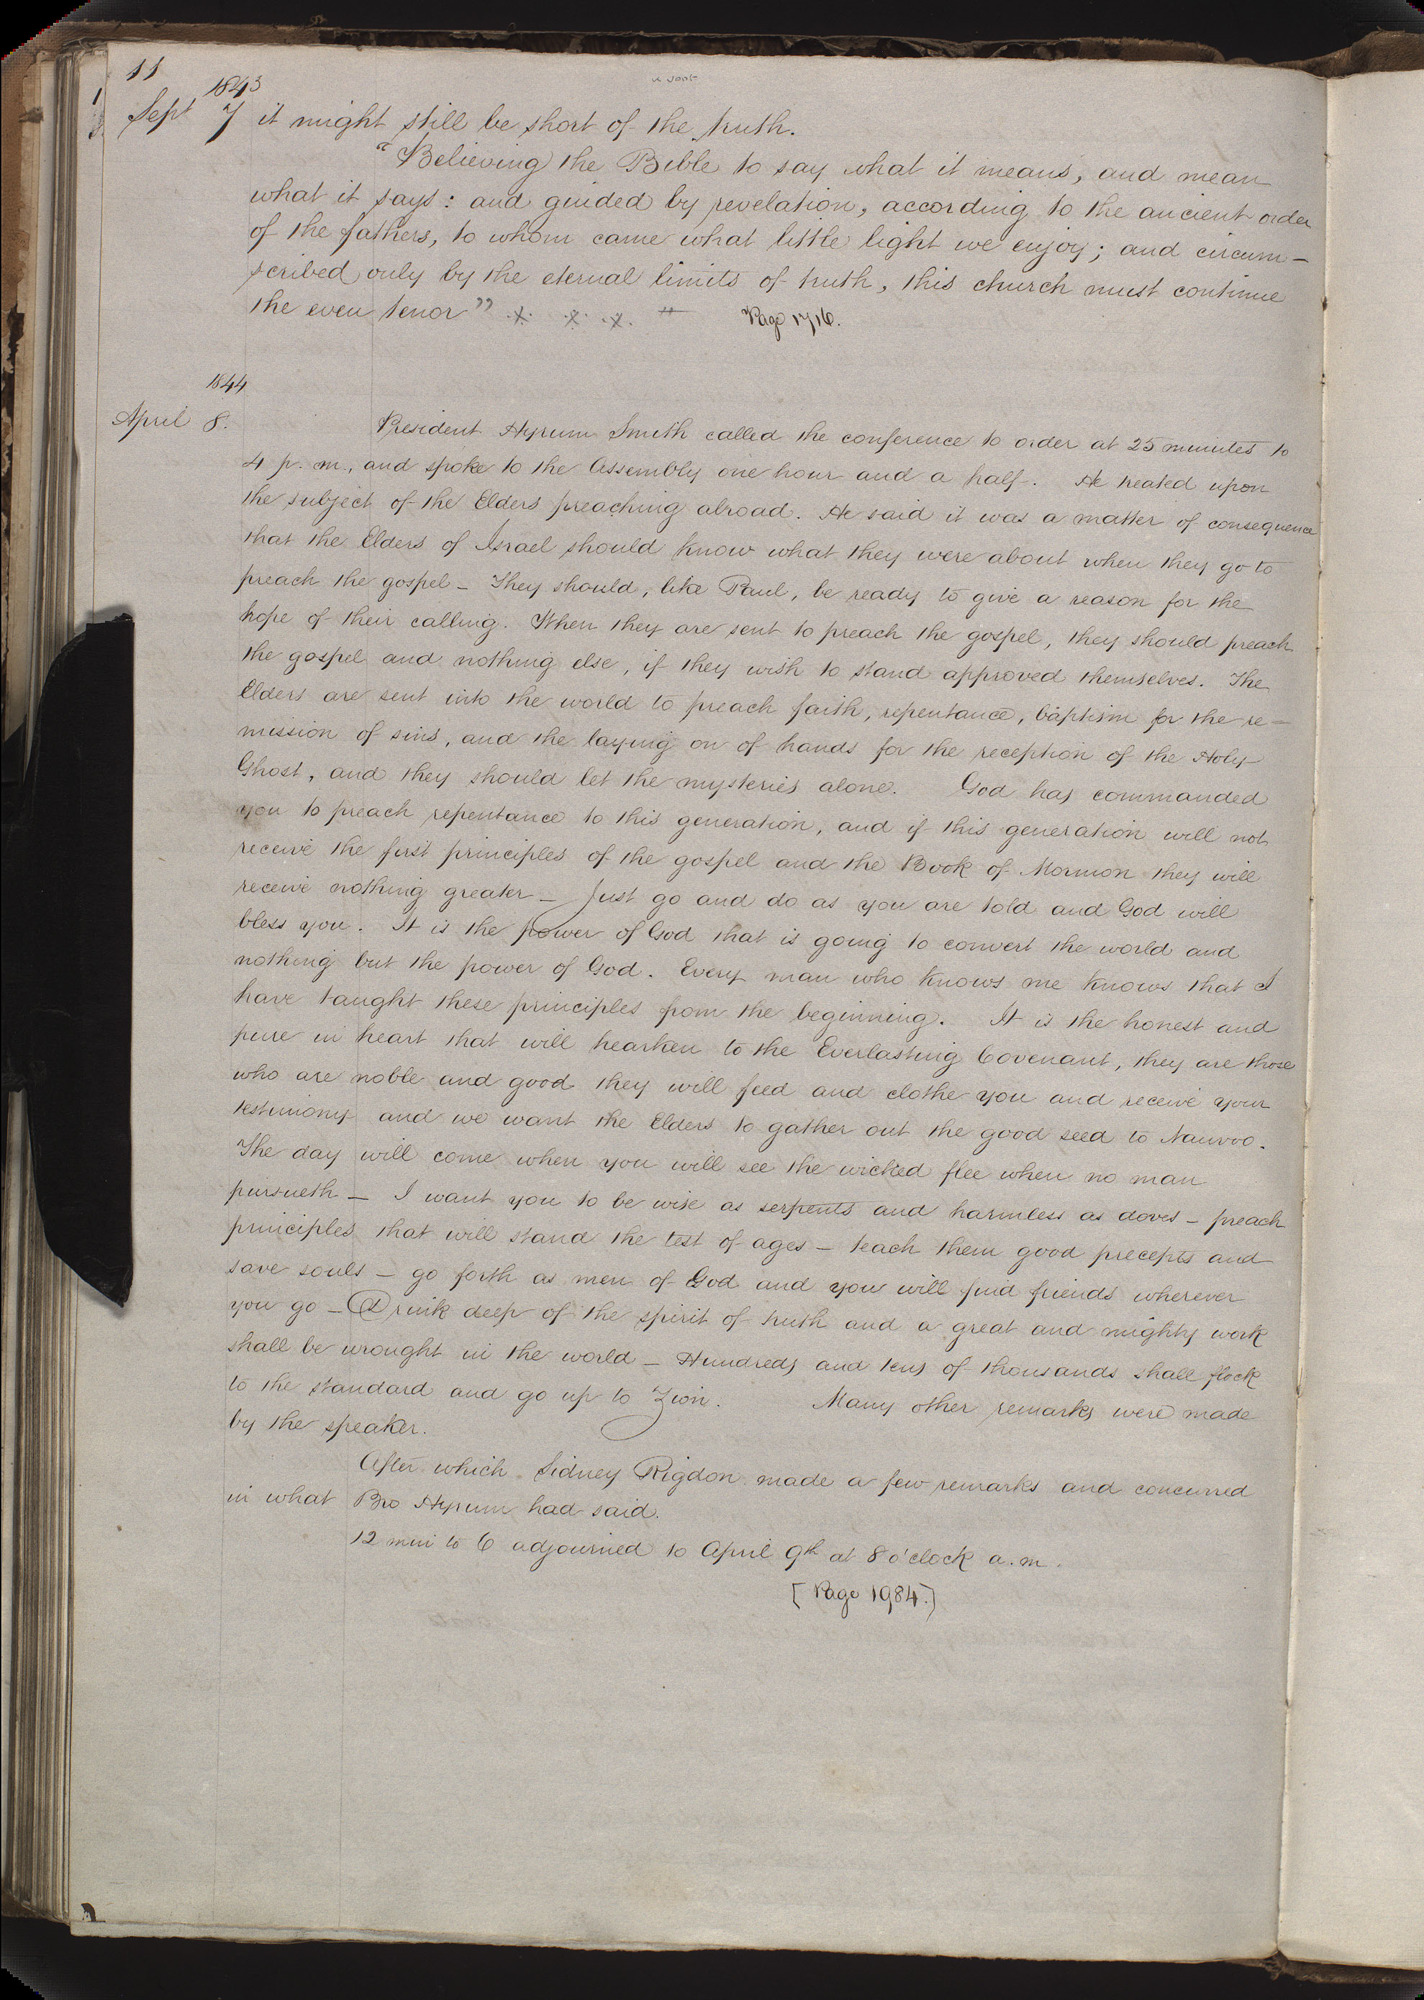 11
1843
Sept 7 it might still be short of the truth.
"Believing the Bible to say what it means, and mean
what it says: and guided by revelation, according to the ancient order
of the fathers, to whom came what little light we enjoy; and circum-
scribed only by the eternal limits of truth, this church must continue
the even tenor" * * * " Page 1716.
1844
April 8. President Hyrum Smith called the conference to order at 25 minutes to
4 p. m., and spoke to the Assembly one hour and a half. He treated upon
the subject of the Elders preaching abroad. He said it was a matter of consequence
that the Elders of Israel should know what they were about when they go to
preach the gospel - They should, like Paul, be ready to give a reason for the
hope of their calling. When they are sent to preach the gospel, they should preach
the gospel and nothing else, if they wish to stand approved themselves. The
Elders are sent into the world to preach faith, repentance, baptism for the re-
mission of sins, and the laying on of hands for the reception of the Holy
Ghost, and they should let the mysteries alone. God has commanded
you to preach repentance to this generation, and if this generation will not
receive the first principles of the gospel and the Book of Mormon they will
receive nothing greater - Just go and do as you are told and God will
bless you. It is the power of God that is going to convert the world and
nothing but the power of God. Every man who knows me knows that I
have taught these principles from the beginning. It is the honest and
pure in heart that will hearken to the Everlasting Covenant, they are those
who are noble and good they will feed and clothe you and receive your
testimony and we want the Elders to gather out the good seed to Nauvoo.
The day will come when you will see the wicked flee when no man
pursueth - I want you to be wise as serpents and harmless as doves - preach
principles that will stand the test of ages - teach them good precepts and
save souls - go forth as men of God and you will find friends wherever
you go - Drink deep of the spirit of truth and a great and mighty work
shall be wrought in the world - Hundreds and tens of thousands shall flock
to the standard and go up to Zion. Many other remarks were made
by the speaker.
After which Sidney Rigdon made a few remarks and concurred
in what Bro Hyrum had said.
12 min to 6 adjourned to April 9th at 8 o'clock a.m.
[Page 1984.]